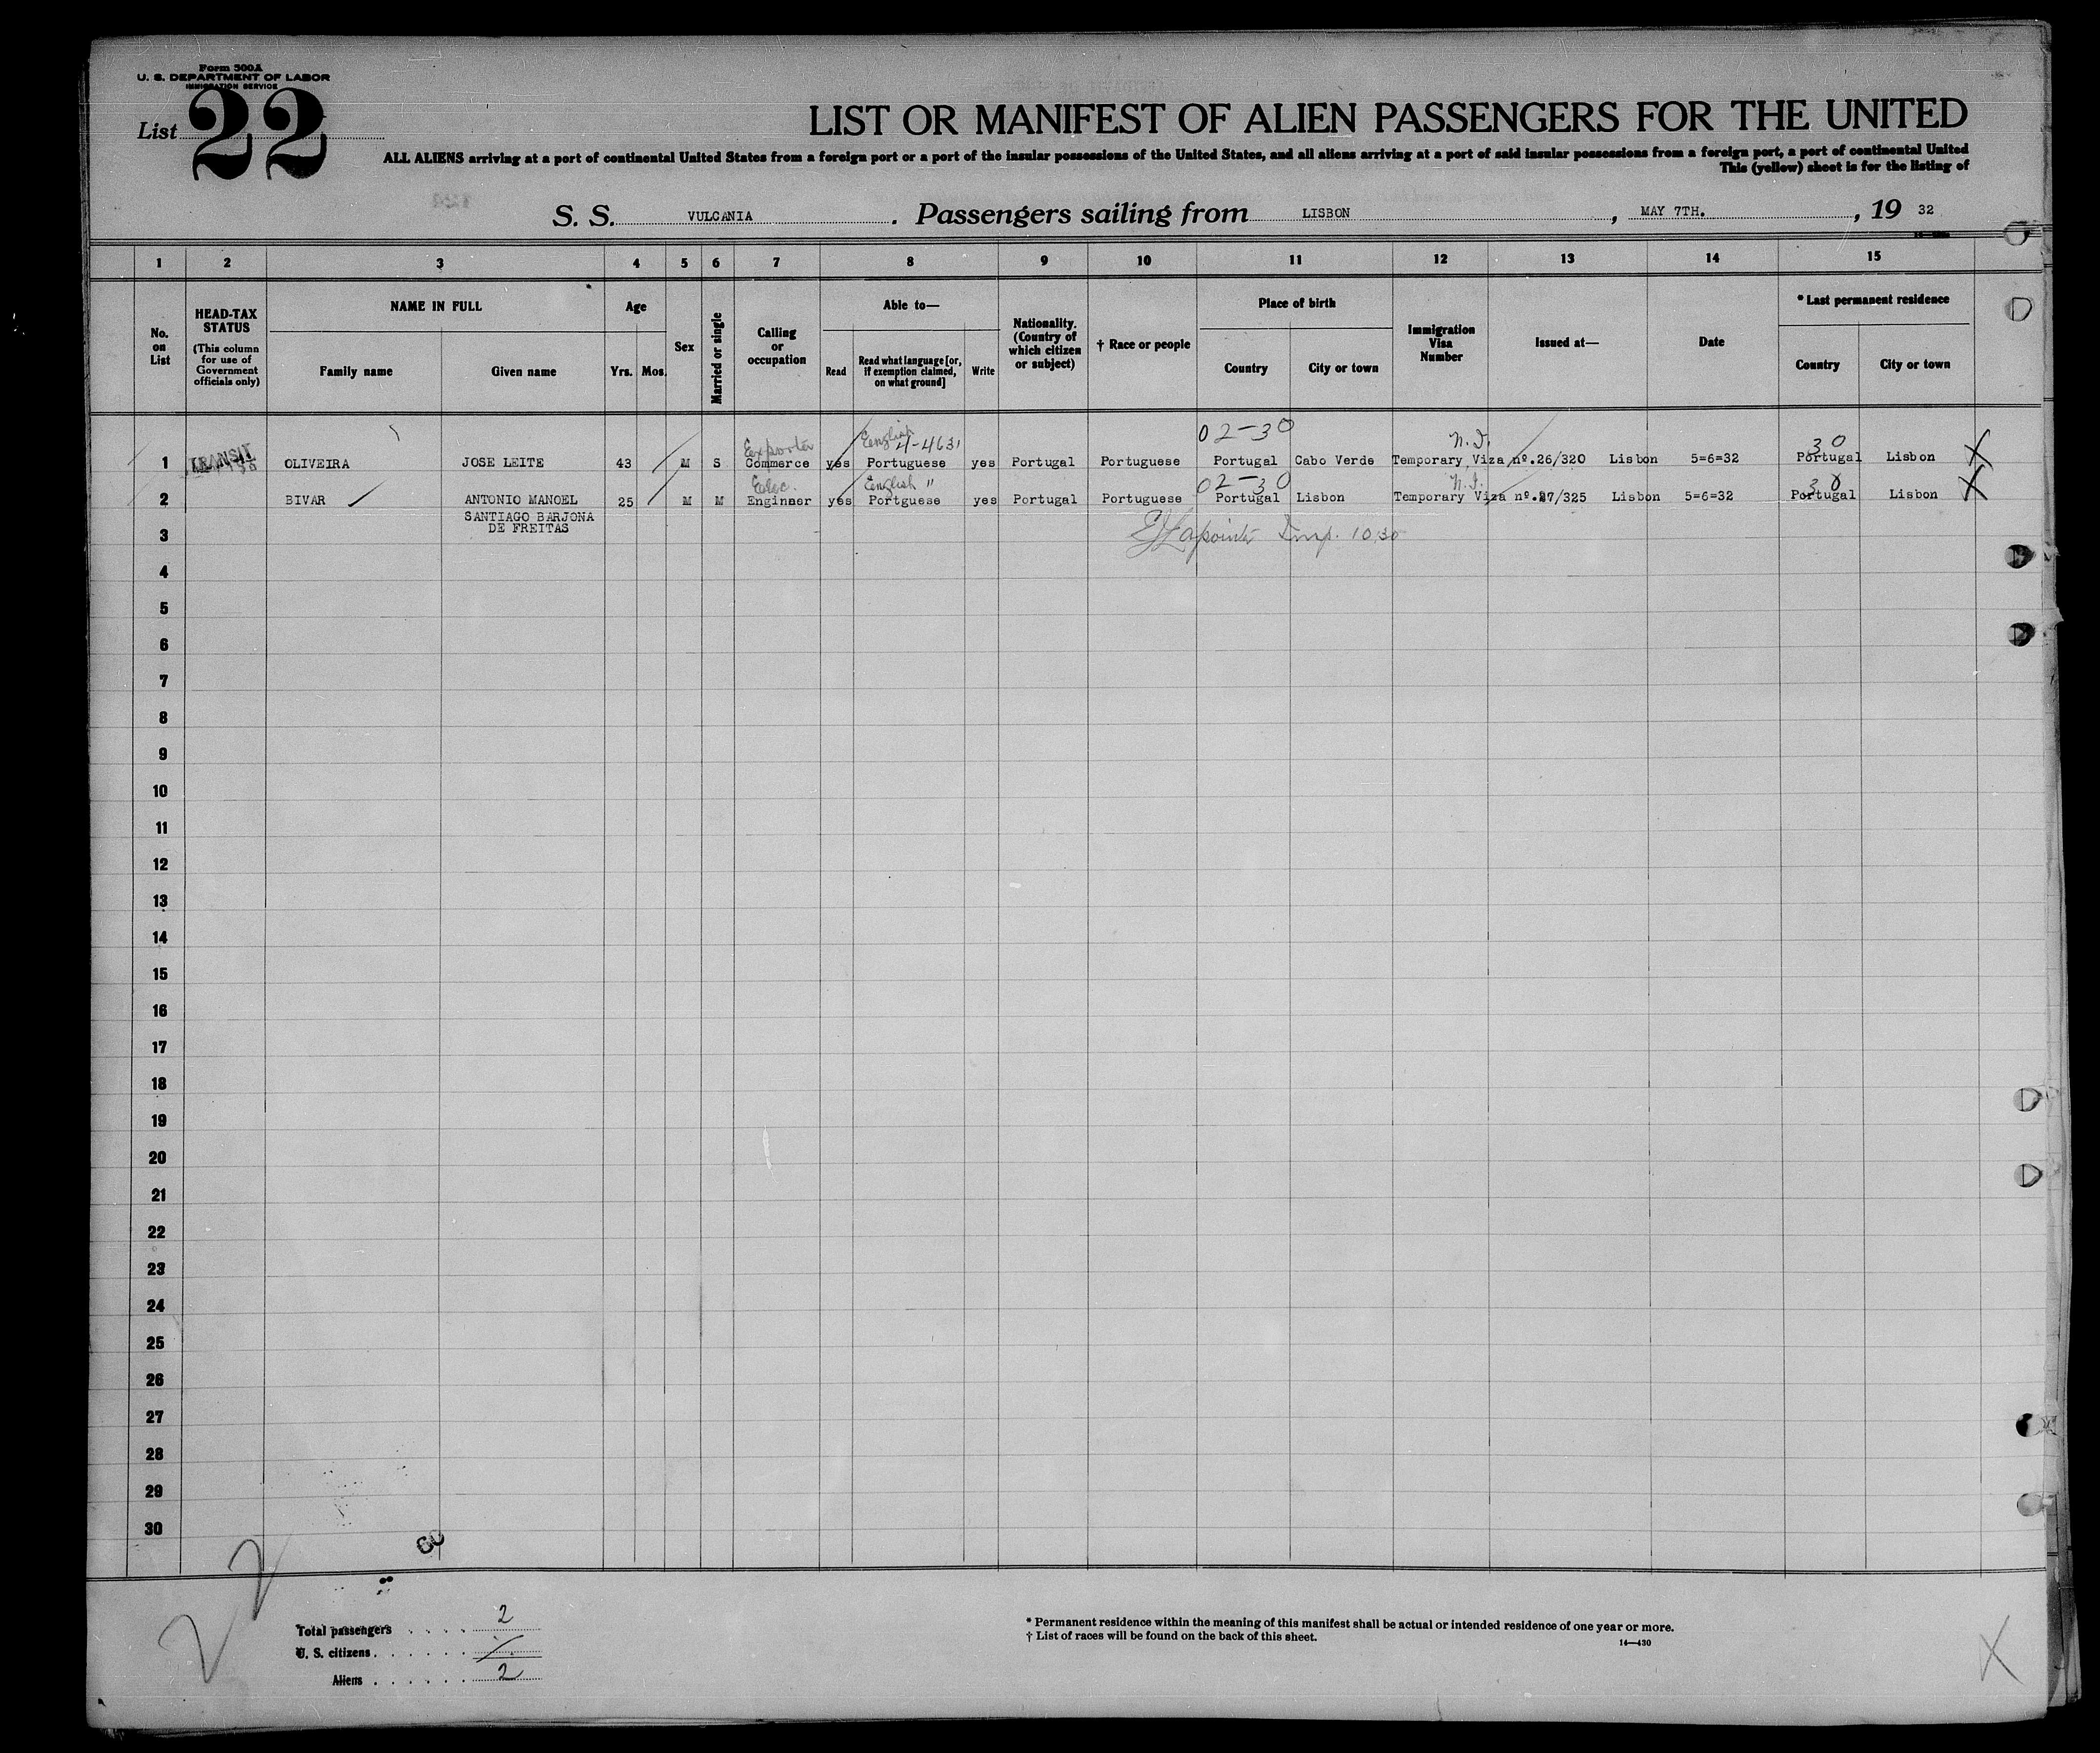 Form 500A
U. S. DEPARTMENT OF LABOR
IMMIGRATION SERVICE
List 22
LIST OR MANIFEST OF ALIEN PASSENGERS FOR THE UNITED
ALL ALIENS arriving at a port of continental United States from a foreign port or a port of the insular possessions of the United States, and all aliens arriving at a port of said insular possessions from a foreign port, a port of continental United
This (yellow) sheet is for the listing of
S. S. VULCANIA. Passengers sailing from LISBON, MAY 7TH., 19 32
1 2 3 4 5 6 7 8 9 10 11 12 13 14 15
No. on List
HEAD-TAX STATUS
(This column for use of Government officials only)
NAME IN FULL
Family name Given name
Age
Yrs. Mos.
Sex
Married or single
Calling or occupation
Able to—
Read
Read what language [or, if exemption claimed, on what ground]
Write
Nationality. (Country of which citizen or subject)
† Race or people
Place of birth
Country City or town
Immigration Visa Number
Issued at—
Date
* Last permanent residence
Country City or town
Exporter English 4-4631 02-30 N.I. 30
1 TRANSIT OLIVEIRA JOSE LEITE 43 M S Commerce yes Portuguese yes Portugal Portuguese Portugal Cabo Verde Temporary Viza nº.26/320 Lisbon 5=6=32 Portugal Lisbon X
Elec. English " 02-30 N.I. 30
2 BIVAR ANTONIO MANOEL 25 M M Enginner yes Portguese yes Portugal Portuguese Portugal Lisbon Temporary Viza nº.27/325 Lisbon 5=6=32 Portugal Lisbon X
SANTIAGO BARJONA
DE FREITAS
3 Lapointe Insp. 10,30
4
5
6
7
8
9
10
11
12
13
14
15
16
17
18
19
20
21
22
23
24
25
26
27
28
29
30
2 2
Total passengers . . . . 2
U. S. citizens . . . . . .
Aliens . . . . . . 2
* Permanent residence within the meaning of this manifest shall be actual or intended residence of one year or more.
† List of races will be found on the back of this sheet.
14—430
X